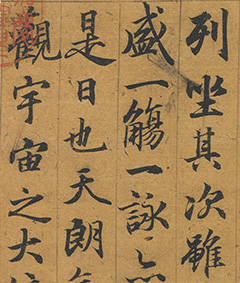 列坐其次雖
盛一觴一詠
是日也天朗
觀宇宙之大